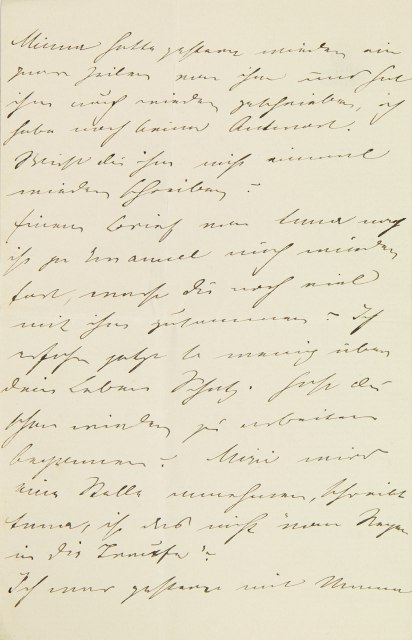 Minna hatte gestern wieder ein
paar Zeilen von ihm und hat
ihm auch wieder geschrieben, ich
habe noch keine Antwort.
Willst du ihm nicht einmal
wieder schreiben?
Einen Brief von Emma
ist zu Emanuel
fort, warst du noch viel
mit ihm zusammen? Ich
erfahre jetzt so wenig über
dein Leben Schatz. Hast du
schon wieder zu arbeiten
begonnen? Mizi wird
eine Stelle annehmen, schreibt
Emma, ist das nicht "vom Regen
in die Traufe"?
Ich war gestern mit Minna